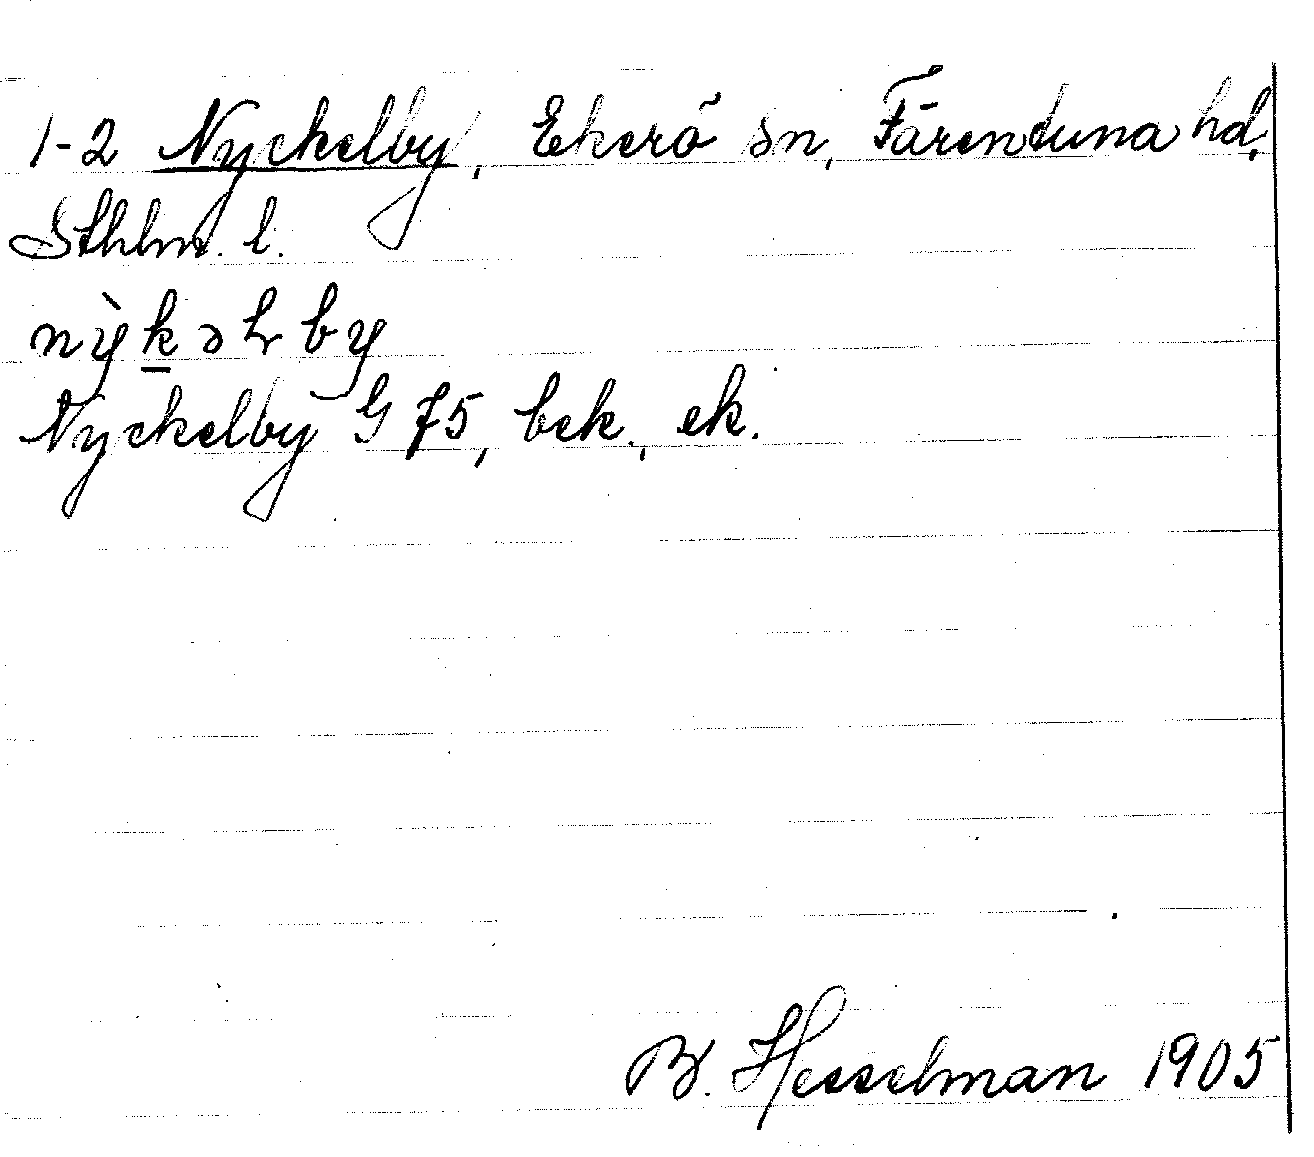 1-2 Nyckelby, Ekerö sn, Färentuna hd,
Sthlm. l.
nỳkəlrby
Nyckelby G 75, bek., ek.
B. Hesselman 1905